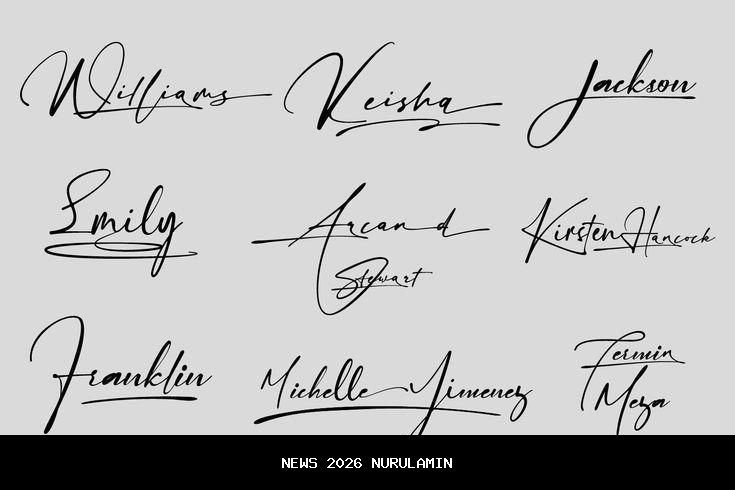 Williams
Keisha
Jackson
Emily
Arcand
Stewart
Kirsten Hancock
Franklin
Michelle Yimenez
Fermin
Meza
NEWS 2026 NURULAMIN